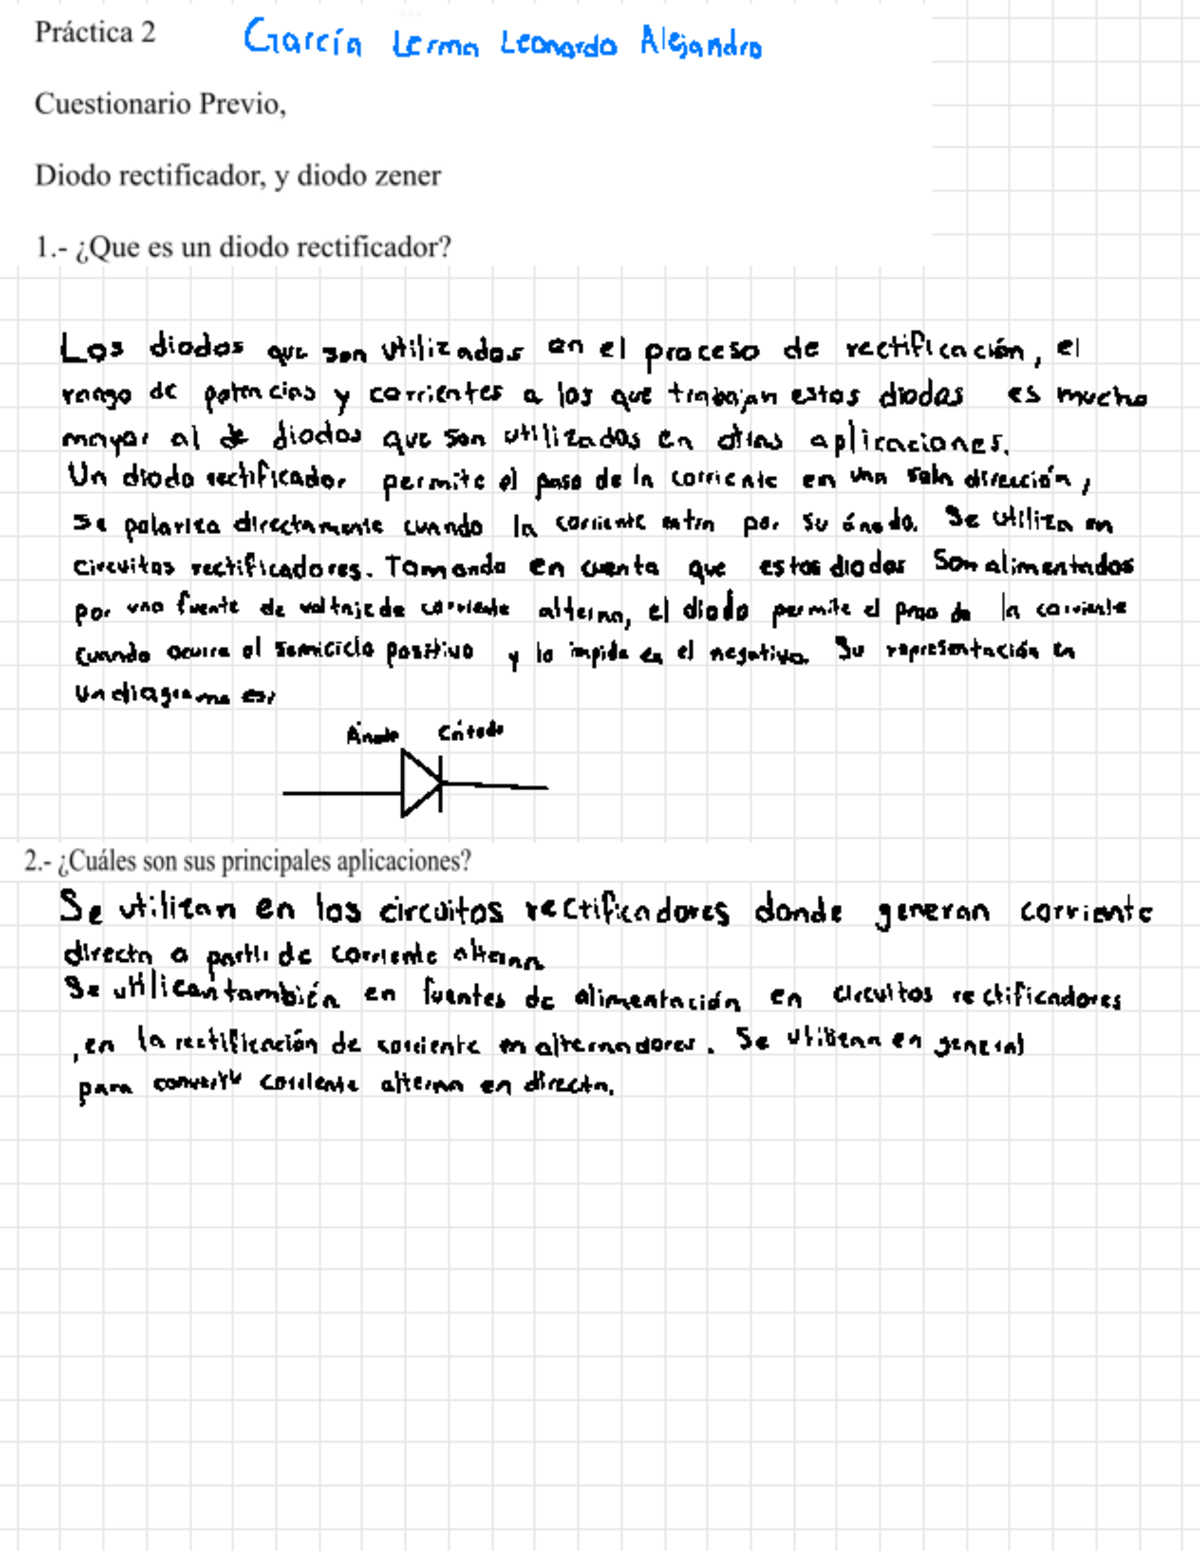 Práctica 2 García Lerma Leonardo Alejandro
Cuestionario Previo,
Diodo rectificador, y diodo zener
1.- ¿Que es un diodo rectificador?
Los diodos que son utilizados en el proceso de rectificación, el
rango de potencias y corrientes a los que trabajan estos diodos es mucho
mayor al de diodos que son utilizados en otras aplicaciones.
Un diodo rectificador permite el paso de la corriente en una sola dirección,
se polariza directamente cuando la corriente entra por su ánodo. Se utiliza en
circuitos rectificadores. Tomando en cuenta que estos diodos son alimentados
por una fuente de voltaje de corriente alterna, el diodo permite el paso de la corriente
cuando ocurre el semiciclo positivo y lo impide en el negativo. Su representación en
un diagrama es:
Ánodo Cátodo
2.- ¿Cuáles son sus principales aplicaciones?
Se utilizan en los circuitos rectificadores donde generan corriente
directa a partir de corriente alterna
Se utilican también en fuentes de alimentación en circuitos rectificadores
, en la rectificación de corriente en alternadores. Se utilizan en general
para convertir corriente alterna en directa.